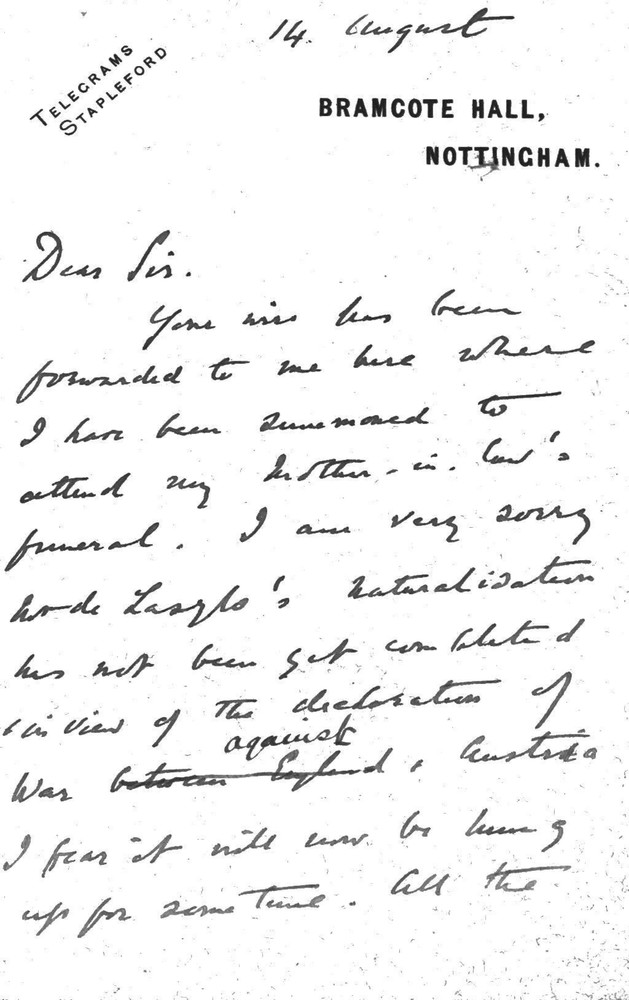 14. August
TELEGRAMS
STAPLEFORD
BRAMCOTE HALL,
NOTTINGHAM.
Dear Sir.
Your wire has been
forwarded to me here where
I have been summoned to
attend my Mother-in-law's
funeral. I am very sorry
Mr de Laszlo's naturalisation
has not been yet completed
& in view of the declaration of
against
War between England & Austria
I fear it will now be hung
up for some time. All the